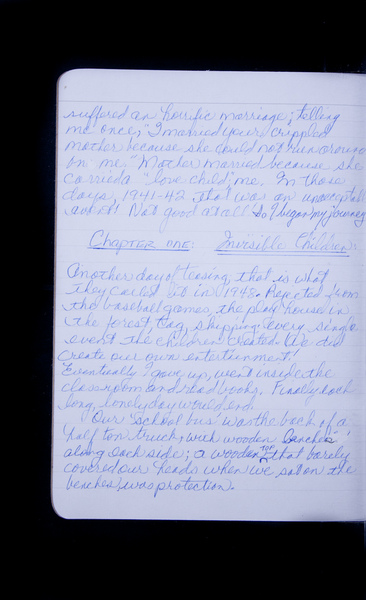 suffered an horrific marriage; telling
me once, "I married your crippled
mother because she could not run around
on me." Mother married because she
carried a "love child", me. In those
days, 1941-42 that was an unacceptable
act Not good at all So I began my journey
Chapter one: Invisible Children:
Another day of teasing, that is what
they called it in 1948. Rejected from
the baseball games, the play houses in
the forest, tag, skipping every single
event the children created. We did
create our own entertainment!
Eventually I gave up, went inside the
classroom and read books. Finally each
long, lonely day would end.
Our 'school bus' was the back of a
half ton truck, with wooden benches
along each side; a wooden top that barely
covered our heads when we sat on the
benches, was protection.